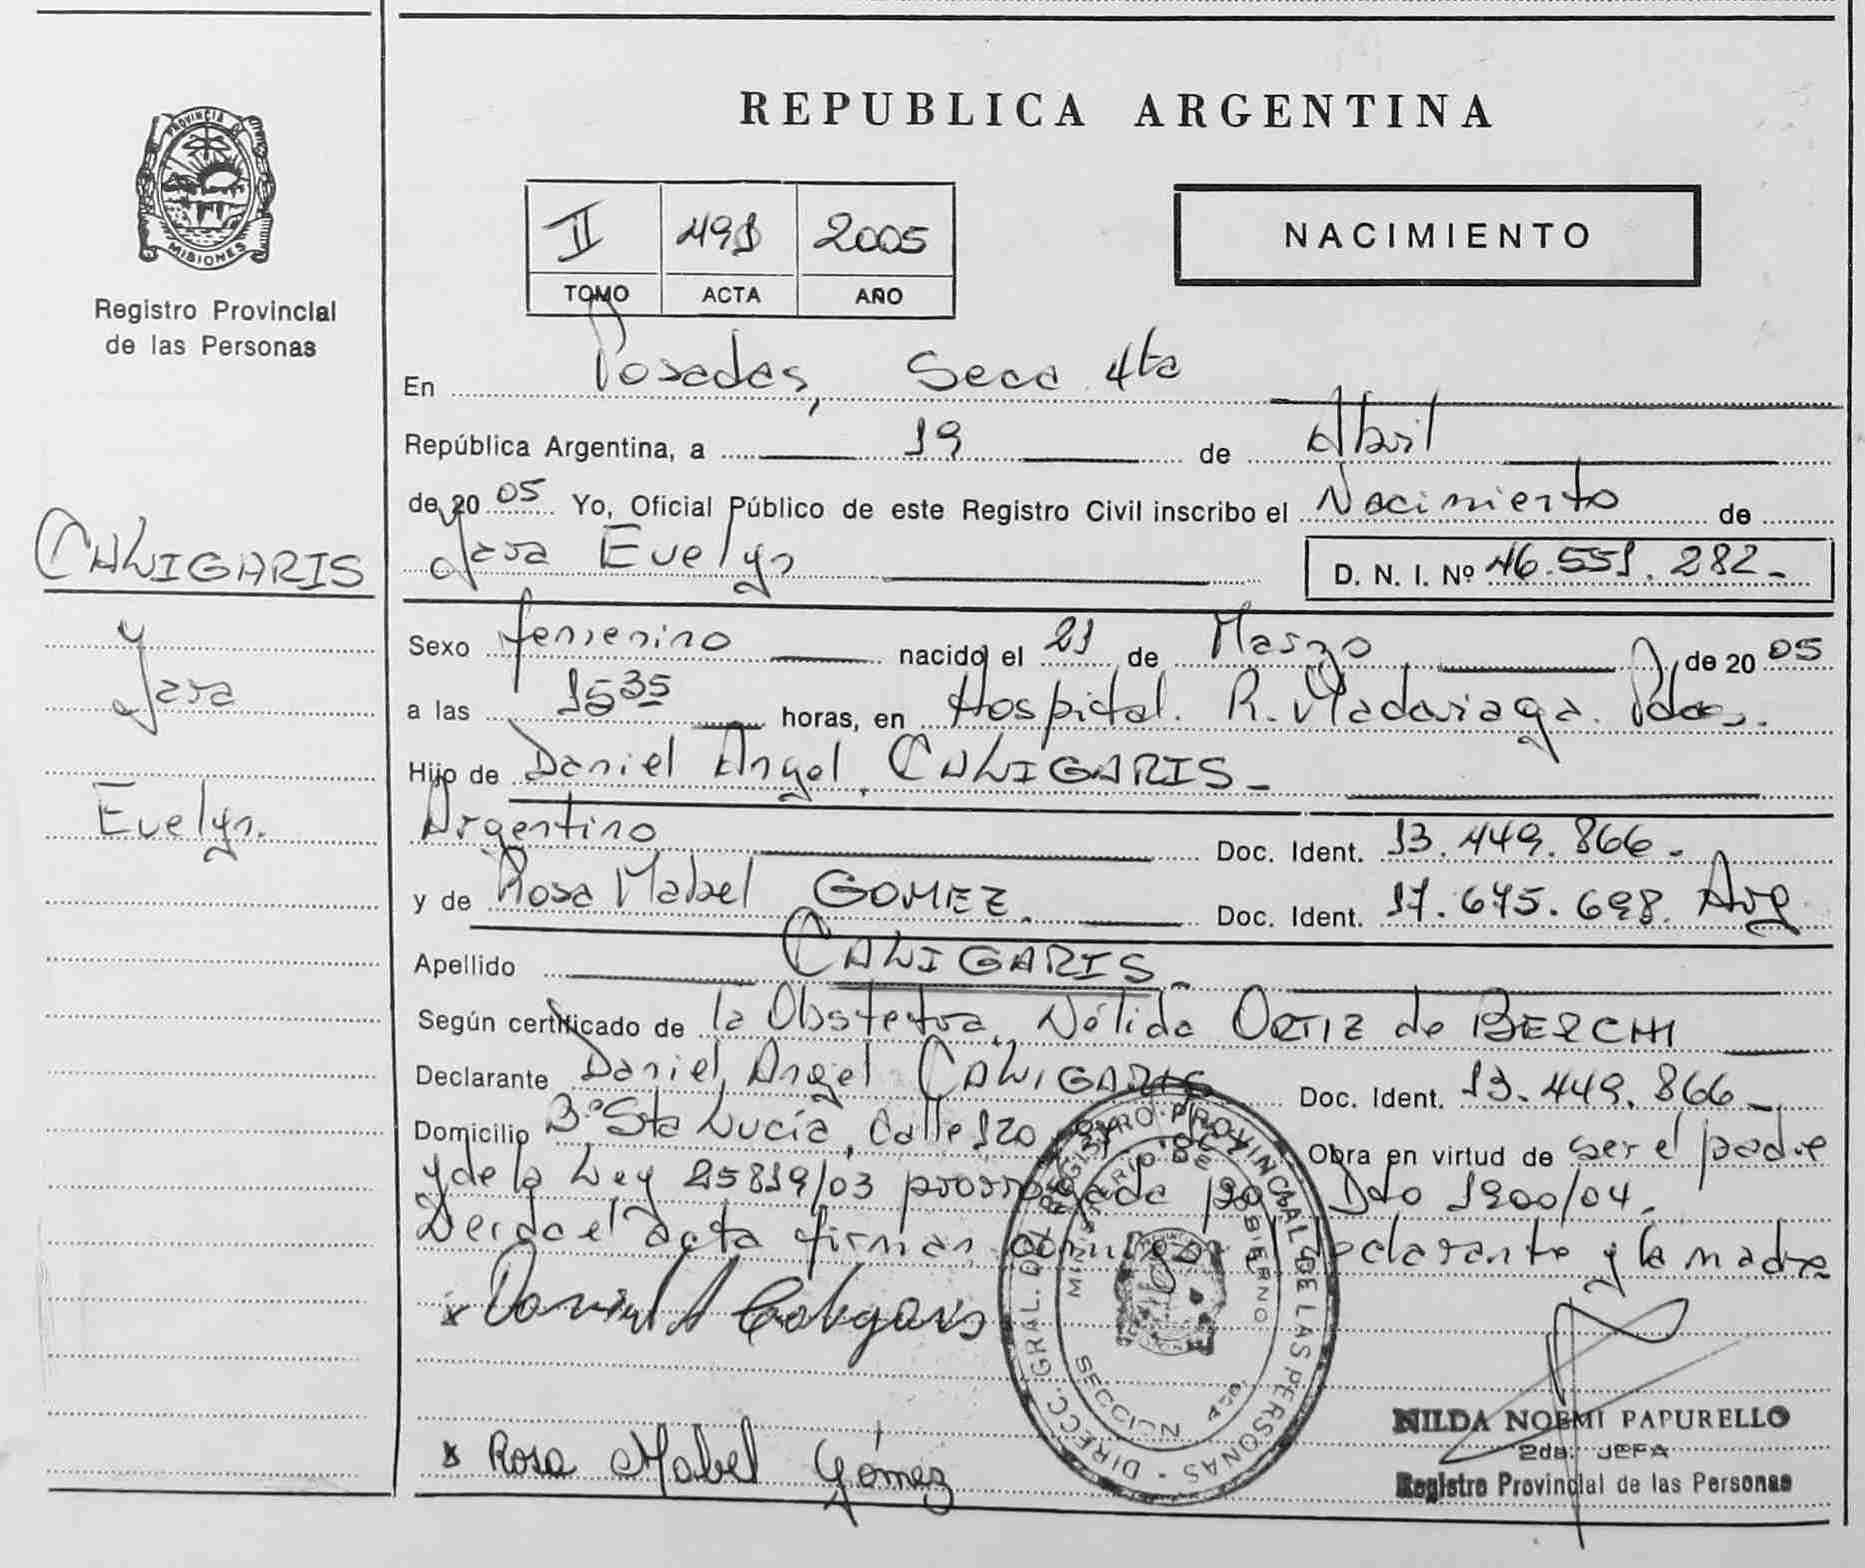 PROVINCIA DE
MISIONES
Registro Provincial
de las Personas
CALIGARIS
Yara
Evelyn.
REPUBLICA ARGENTINA
II 491 2005
TOMO ACTA AÑO
NACIMIENTO
En Posadas, Secc 4ta
República Argentina, a 19 de Abril
de 20 05 Yo, Oficial Público de este Registro Civil inscribo el Nacimiento de
Yara Evelyn D. N. I. Nº 46.551.282-
Sexo femenino nacido el 21 de Marzo de 20 05
a las 15 35 horas, en Hospital. R. Madariaga. Pdas.
Hijo de Daniel Angel CALIGARIS-
Argentino Doc. Ident. 13.449.866-
y de Rosa Mabel GOMEZ. Doc. Ident. 17.675.698. Arg
Apellido CALIGARIS-
Según certificado de la Obstetra Nélida ORTIZ de BERCHI
Declarante Daniel Angel CALIGARIS Doc. Ident. 13.449.866-
Domicilio Bº Sta Lucía, Calle 120 Obra en virtud de ser el padre
y de la Ley 25819/03 prorrogada por Dto 1900/04.
Leida el acta firman conmigo el declarante y la madre
x Daniel A Caligaris
x Rosa Mabel Gómez
DIRECC. GRAL. DEL REGISTRO PROVINCIAL DE LAS PERSONAS
MINISTERIO DE GOBIERNO
SECCION 4ta.
NILDA NOEMI PAPURELLO
2da. JEFA
Registro Provincial de las Personas